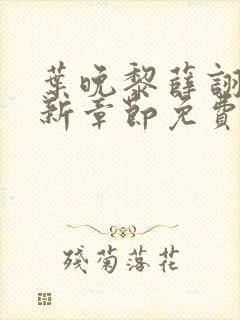 葉晚黎薛詡
新章節免費
殘菊落花